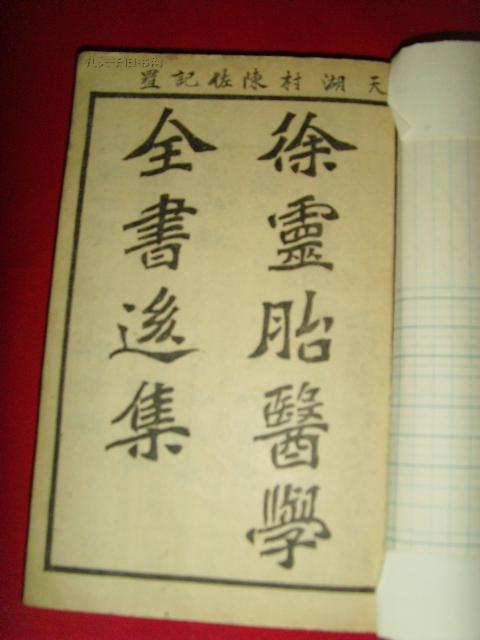 天湖村陳佐記置
徐靈胎醫學
全書後集
孔夫子旧书网